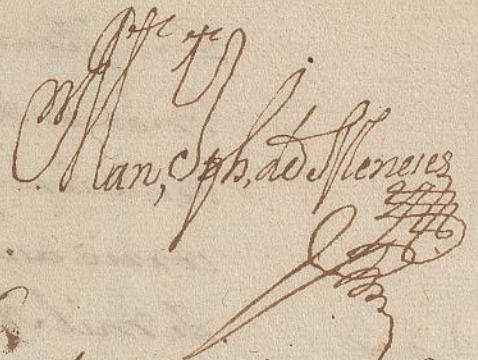 Man, Jph, de Meneses